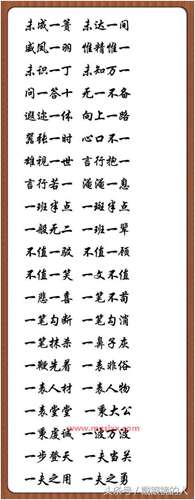 未成一篑 未达一间
威风一羽 惟精惟一
未识一丁 未知万一
问一答十 无一不备
遐迩一体 向上一路
嚣张一时 心口不一
雄视一世 言行抱一
言行若一 淹淹一息
一班半点 一斑半点
一般无二 一班一辈
不值一驳 不值一顾
不值一笑 一文不值
一悲一喜 一笔不苟
一笔勾断 一笔勾消
一笔抹杀 一鼻子灰
一鞭先着 一表非俗
一表人材 一表人物
一表堂堂 一秉大公
一秉虔诚 一波万波
一步登天 一夫当关
一夫之用 一夫之勇